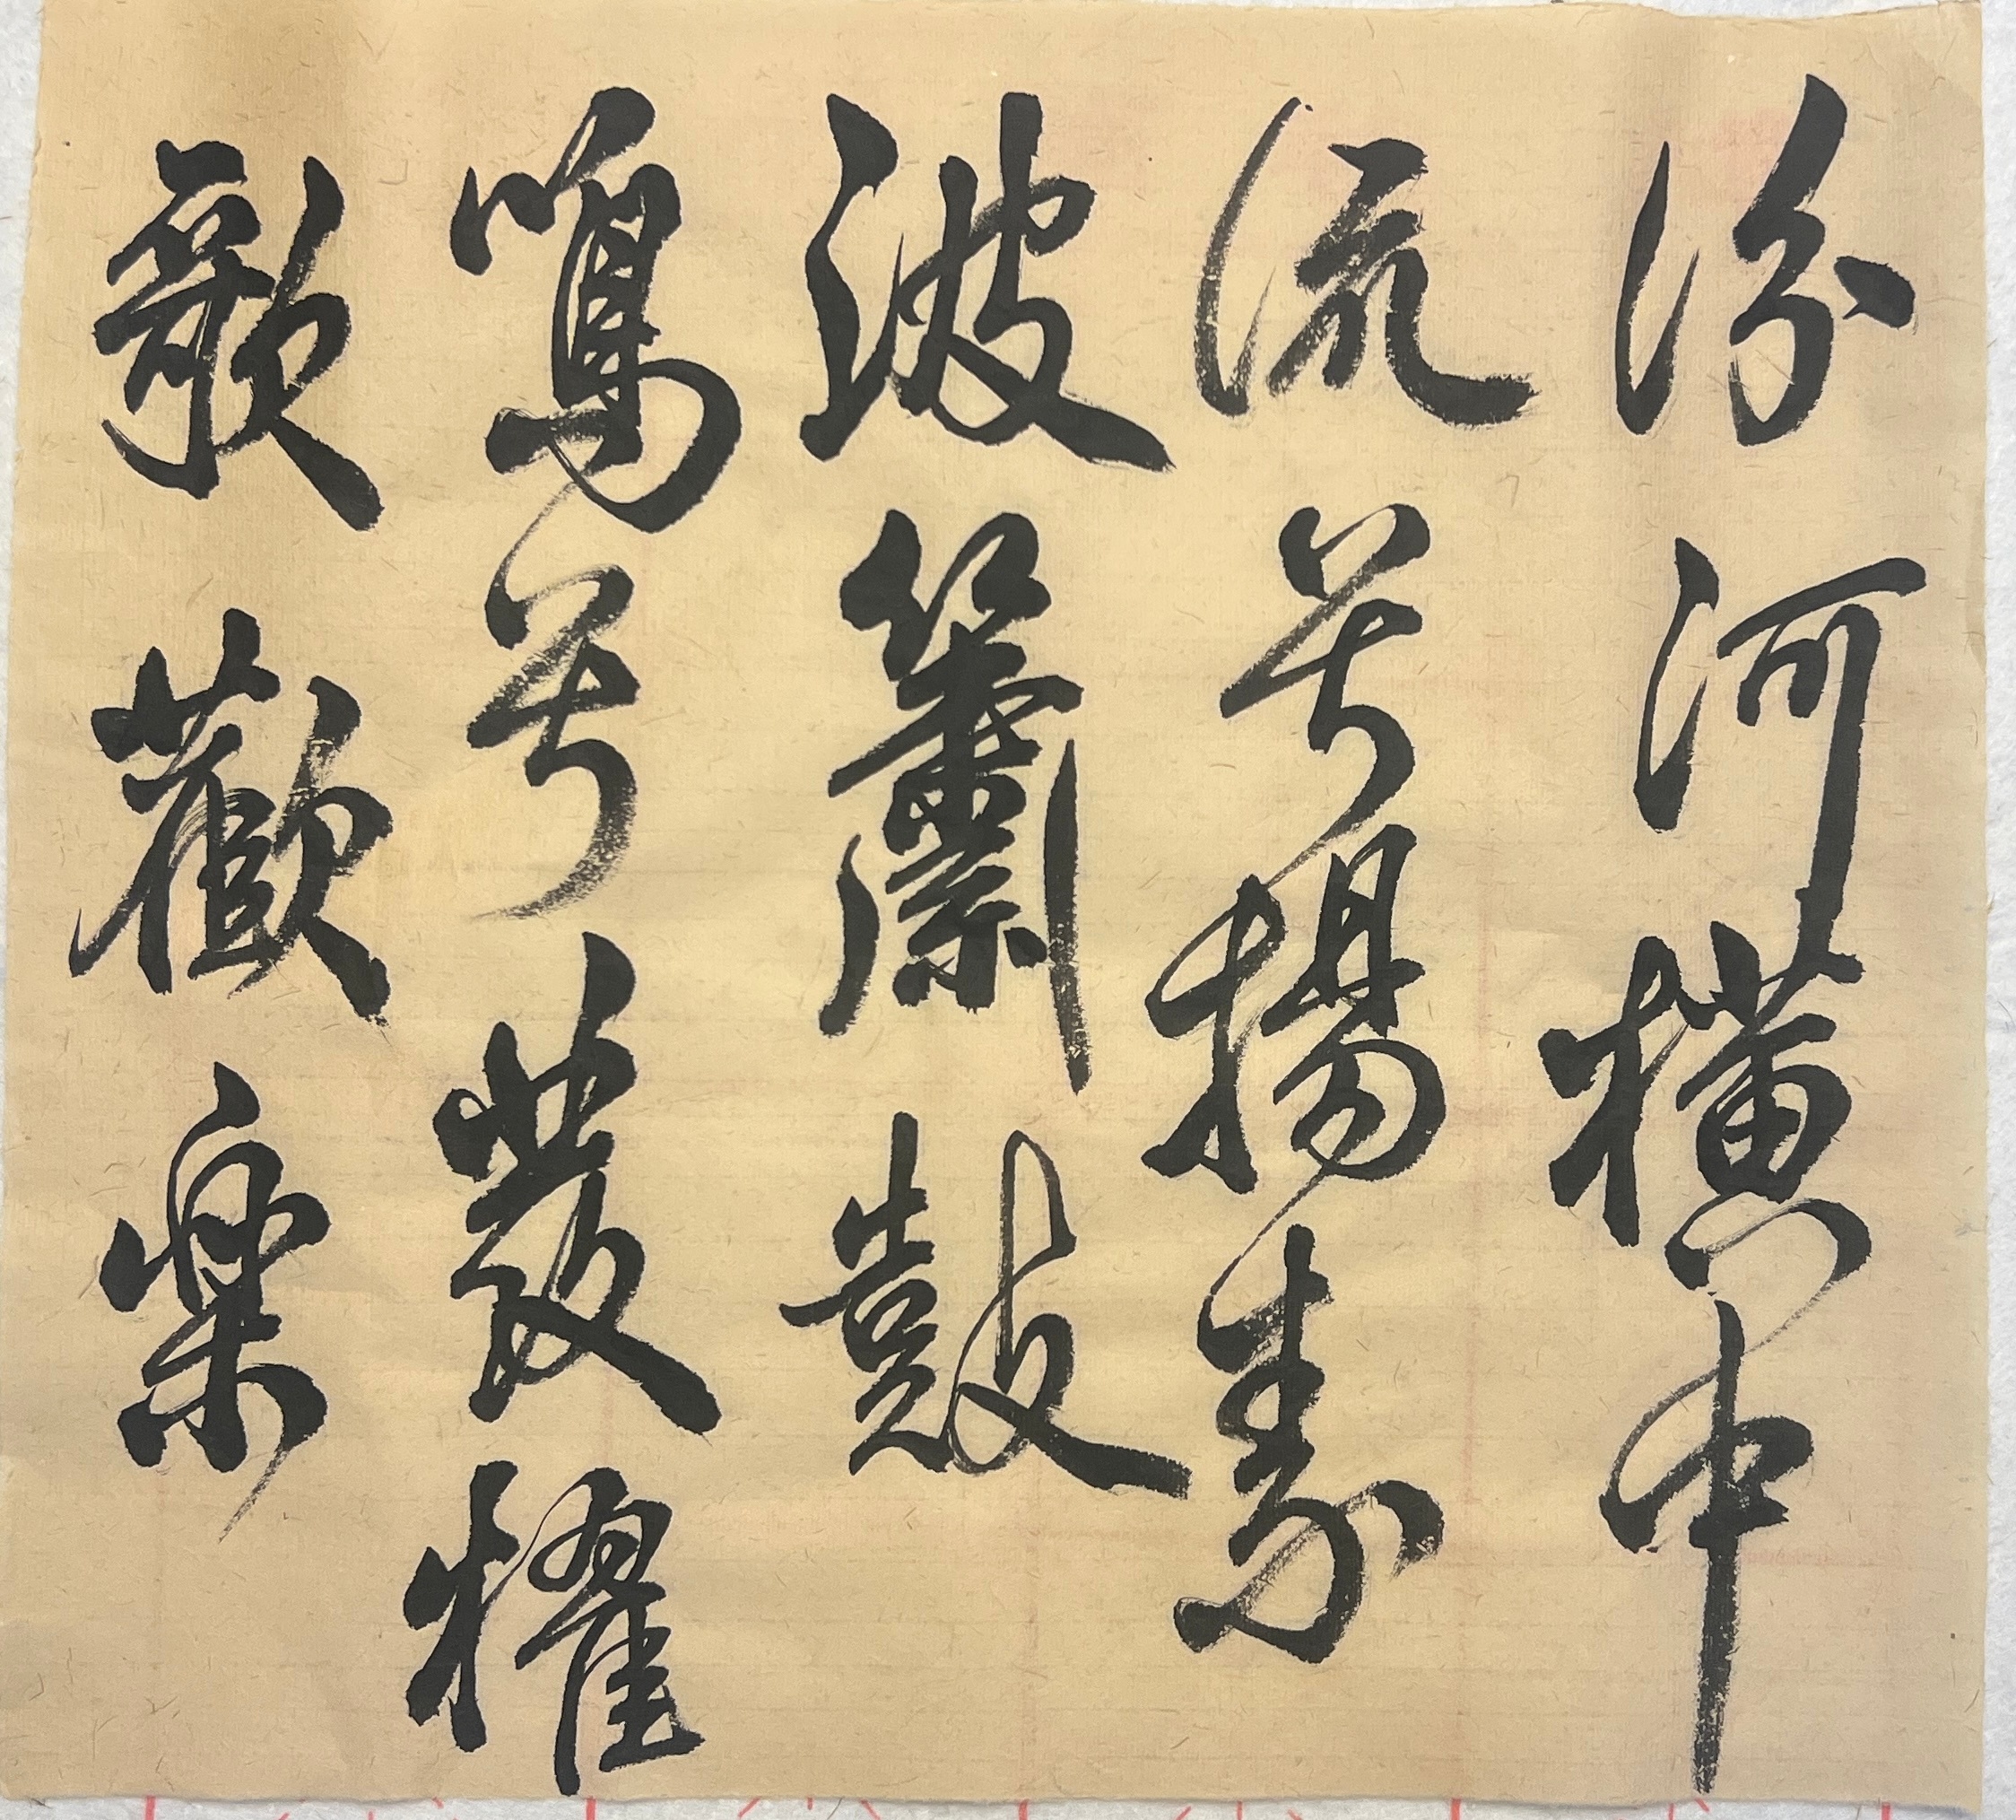 汾河橫中
流兮揚素
波簫鼓
鳴兮發櫂
歌歡樂